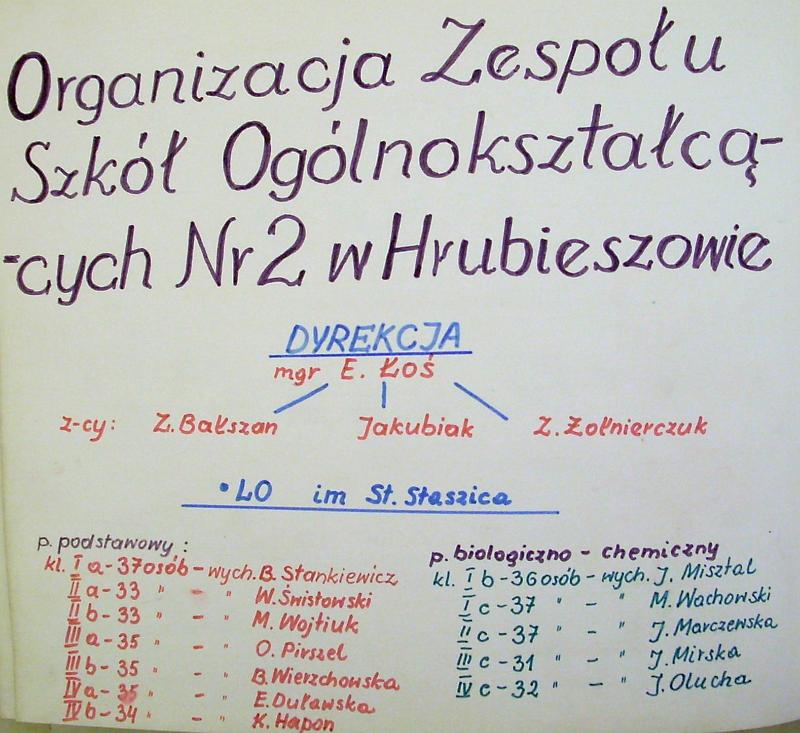 Organizacja Zespołu
Szkół Ogólnokształcą-
-cych Nr 2 w Hrubieszowie
DYREKCJA
mgr E. Łoś
z-cy: Z. Bałszan Jakubiak Z. Żołnierczuk
• LO im St. Staszica
p. podstawowy:
kl. I a - 37 osób - wych. B. Stankiewicz
II a - 33 " - " W. Świstowski
II b - 33 " - " M. Wojtiuk
III a - 35 " - " O. Pirszel
III b - 35 " - " B. Wierzchowska
IV a - 35 " - " E. Duławska
IV b - 34 " - " K. Hapon
p. biologiczno - chemiczny
kl. I b - 36 osób - wych. J. Misztal
I c - 37 " - " M. Wachowski
II c - 37 " - " J. Marczewska
III c - 31 " - " J. Mirska
IV c - 32 " - " J. Olucha